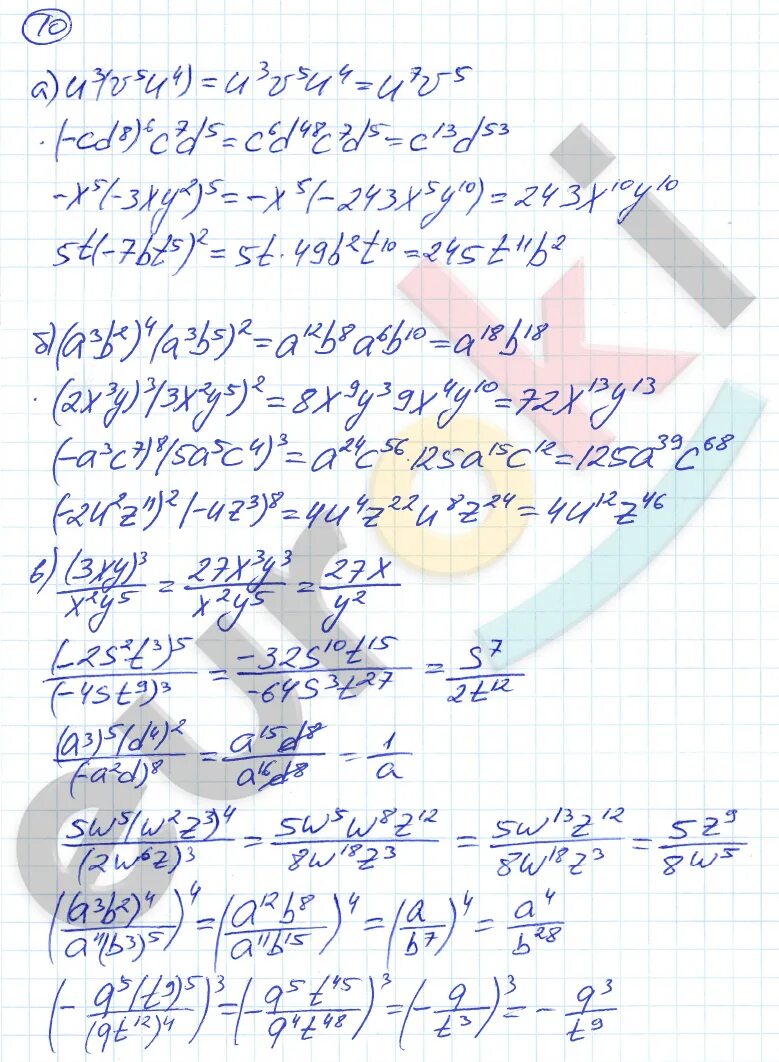 10
а) u³(v⁵u⁴) = u³v⁵u⁴ = u⁷v⁵
(-cd⁸)⁶c⁷d⁵ = c⁶d⁴⁸c⁷d⁵ = c¹³d⁵³
-x⁵(-3xy²)⁵ = -x⁵(-243x⁵y¹⁰) = 243x¹⁰y¹⁰
5t(-7bt⁵)² = 5t·49b²t¹⁰ = 245t¹¹b²
б) (a³b²)⁴(a³b⁵)² = a¹²b⁸a⁶b¹⁰ = a¹⁸b¹⁸
(2x³y)³(3x²y⁵)² = 8x⁹y³9x⁴y¹⁰ = 72x¹³y¹³
(-a³c⁷)⁸(5a⁵c⁴)³ = a²⁴c⁵⁶·125a¹⁵c¹² = 125a³⁹c⁶⁸
(-2u²z¹¹)²(-uz³)⁸ = 4u⁴z²²u⁸z²⁴ = 4u¹²z⁴⁶
в) (3xy)³/x²y⁵ = 27x³y³/x²y⁵ = 27x/y²
(-2s²t³)⁵/(-4st⁹)³ = -32s¹⁰t¹⁵/-64s³t²⁷ = s⁷/2t¹²
(a³)⁵(d⁴)²/(-a²d)⁸ = a¹⁵d⁸/a¹⁶d⁸ = 1/a
5w⁵(w²z³)⁴/(2w⁶z)³ = 5w⁵w⁸z¹²/8w¹⁸z³ = 5w¹³z¹²/8w¹⁸z³ = 5z⁹/8w⁵
((a³b²)⁴/a¹¹(b³)⁵)⁴ = (a¹²b⁸/a¹¹b¹⁵)⁴ = (a/b⁷)⁴ = a⁴/b²⁸
(-q⁵(t⁹)⁵/(qt¹²)⁴)³ = (-q⁵t⁴⁵/q⁴t⁴⁸)³ = (-q/t³)³ = -q³/t⁹
euroki